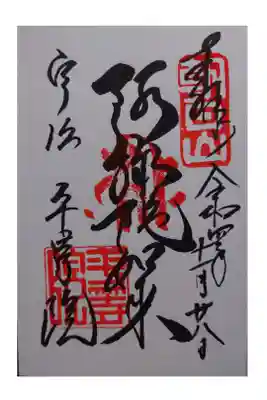 奉拝
令和四年十一月廿八日
阿弥陀如来
宇治 平等院